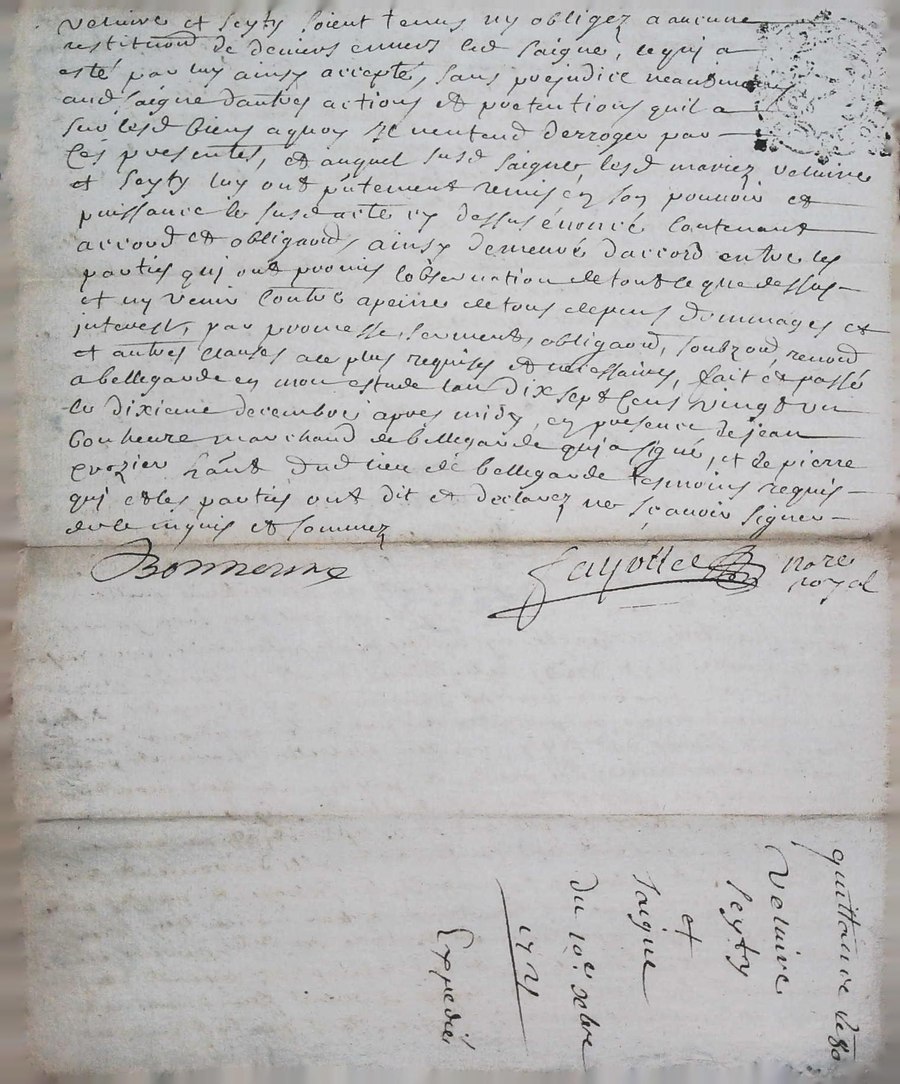 veluire et Seyty soient tenus ny obligez a aucune
restituōn de deniers envers led Saigne, ce qui a
esté par luy ainsy accepté, sans prejudice neantmoins
aud Saigne dautres actions et pretentions quil a
sur lesd biens a quoy il nentend derroger par
ces presentes, et auquel susd Saigne, lesd mariez veluire
et Seyty luy ont pntement remis en son pouvoir et
puissance le susd acte cy dessus énoncé contenant
accord et obligaōn, ainsy demeuré daccord entre les
parties qui ont promis lobservation de tout ce que dessus
et ny venir contre a peine de tous despens dommages et
interest, par promesse, serment, obligaōn, soubzōn, renonō
et autres clauses a ce plus requises et necessaires, fait et passé
a bellegarde en mon estude lan dix sept cens vingt un
le dixieme decembre apres midy, en presence de jean
bonheure marchand de bellegarde qui a signé, et de pierre
crozier dud lieu de bellegarde tesmoins requis
qui et les parties ont dit et declarez ne sçavoir signer
de ce inquis et sommez
Bonneure
Fayolle nore
royal
quittance de 80
veluire
Seyty
et
Saigne
du 10e xbre
1721
Expedié